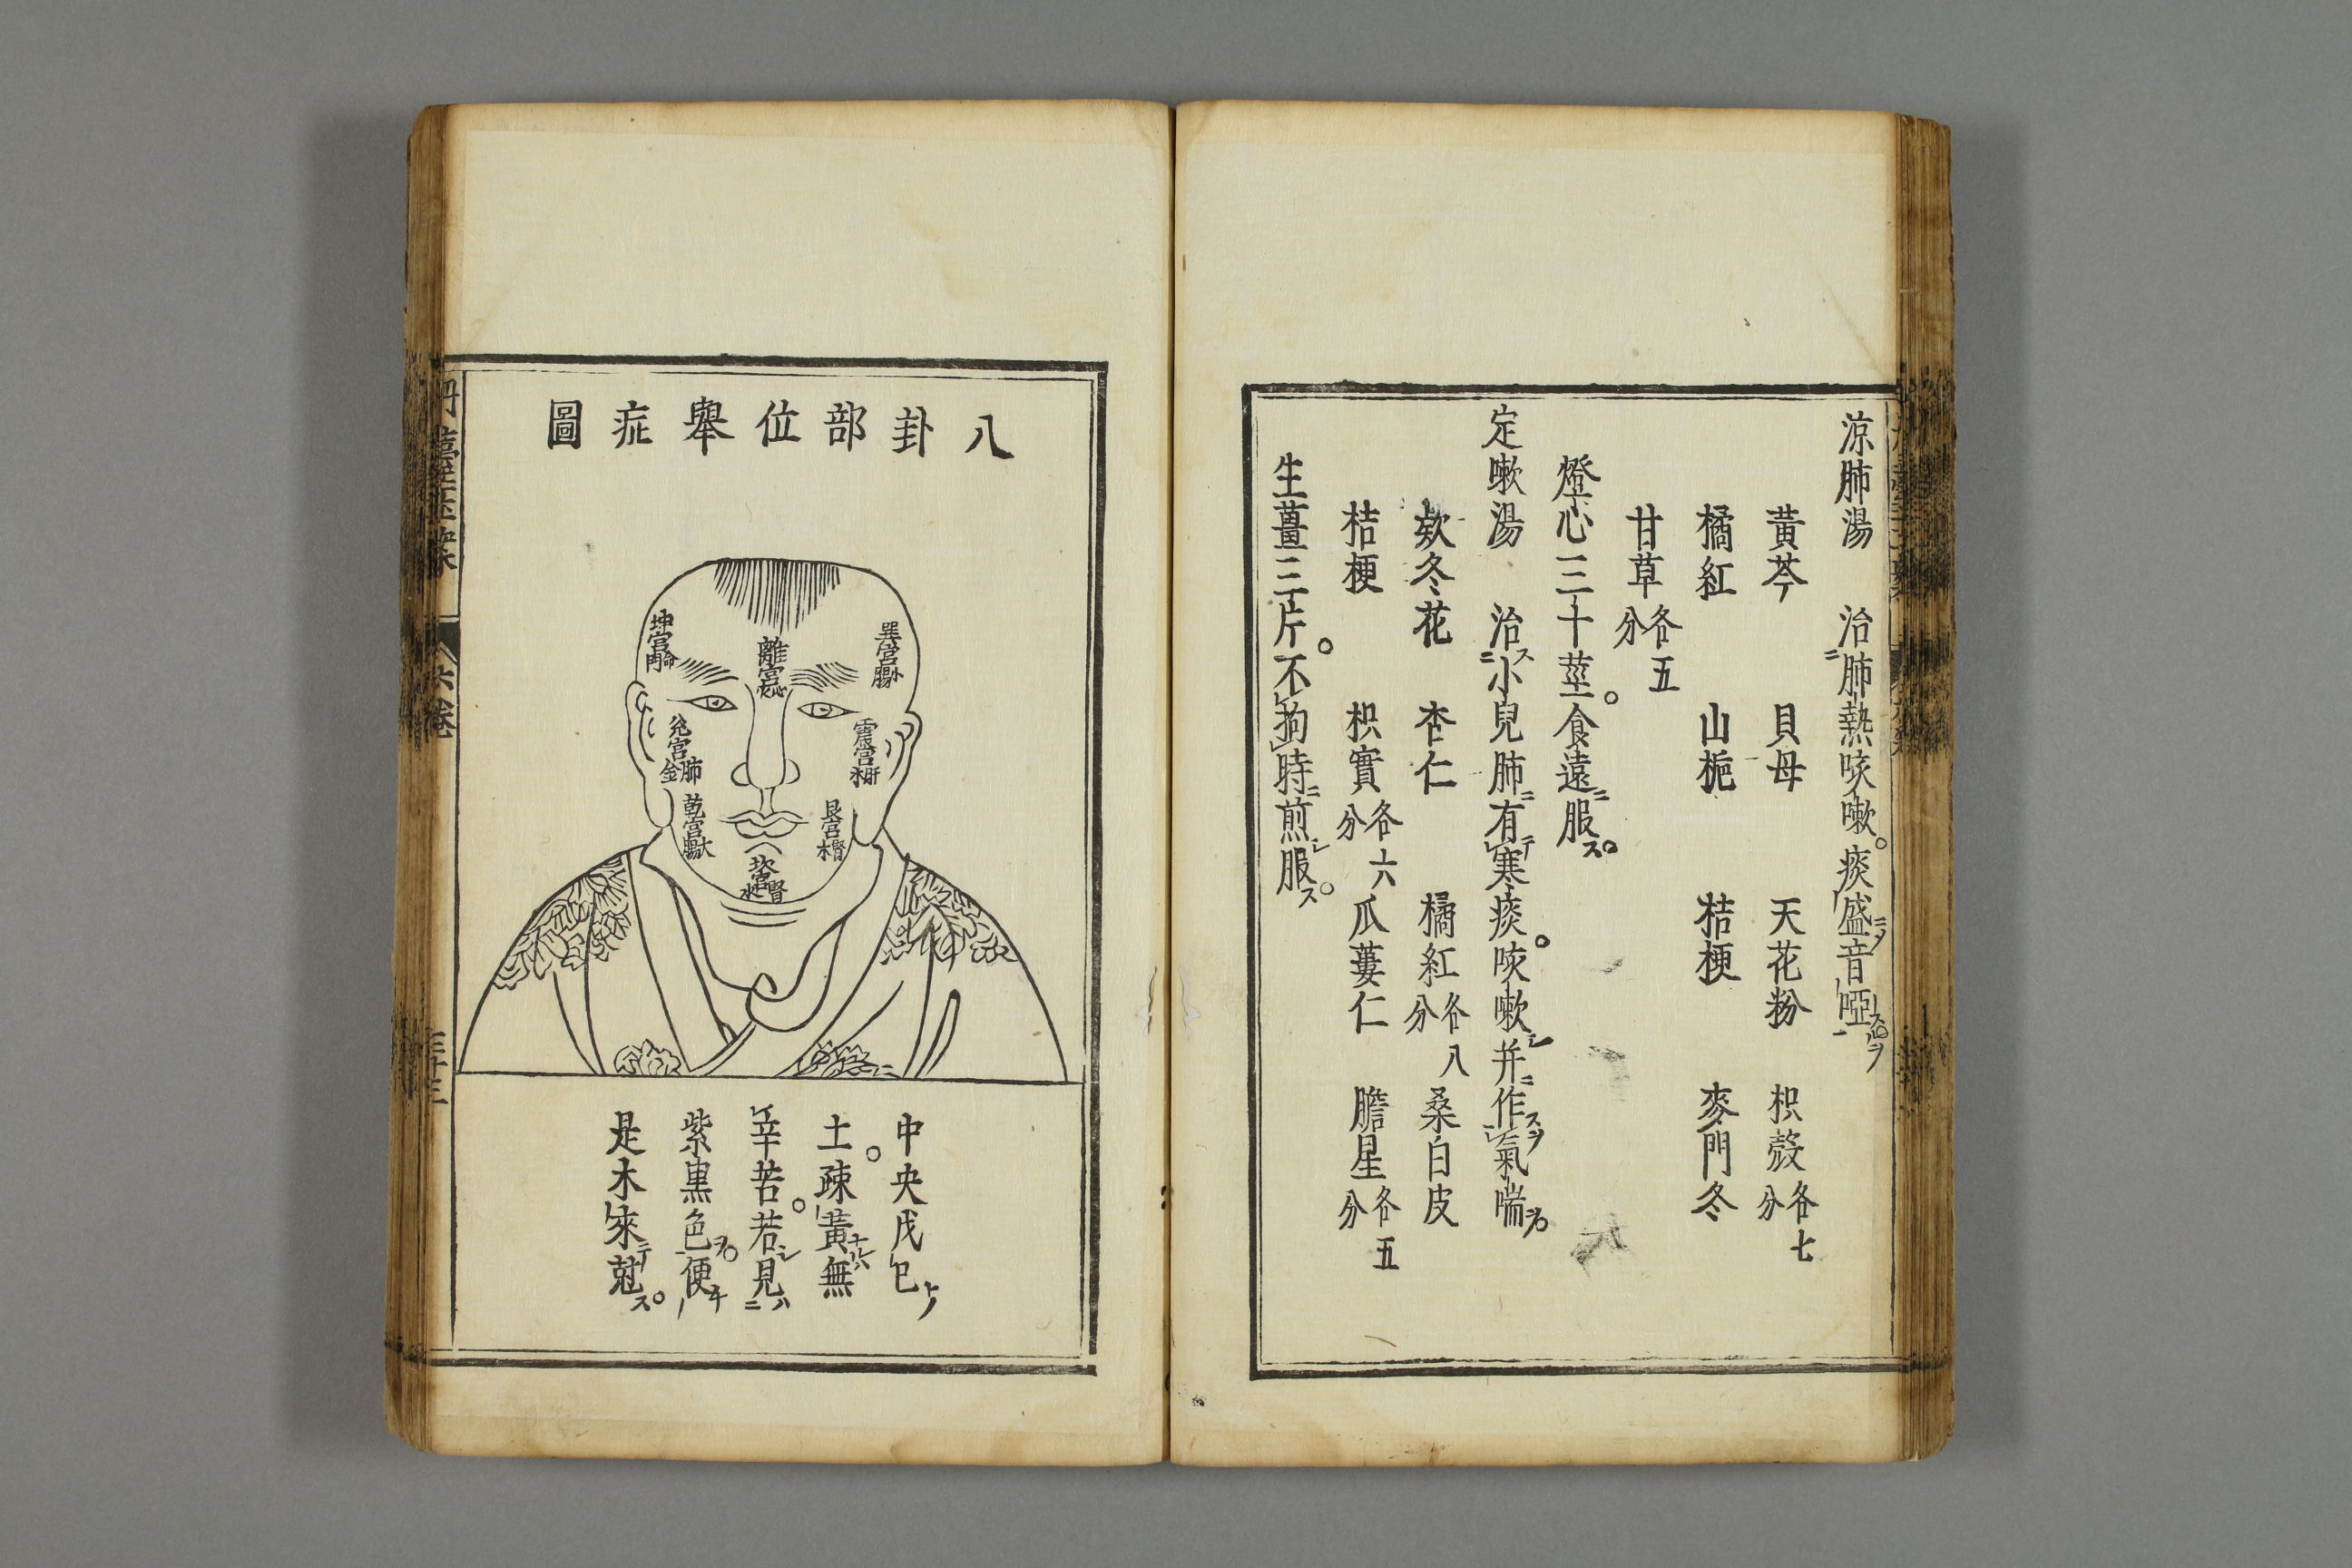 涼肺湯 治肺熱咳嗽。痰盛音啞
黃芩 貝母 天花粉 枳殼各七分
橘紅 山梔 桔梗 麥門冬
甘草各五分
燈心三十莖。食遠服。
定嗽湯 治小兒肺有寒痰。咳嗽并作氣喘
欵冬花 杏仁 橘紅各八分 桑白皮
桔梗 枳實各六分 瓜蔞仁 膽星各五分
生薑三片。不拘時煎服。
八卦部位舉症圖
巽宮膓小
離宮心
坤宮命門
震宮肝木
兌宮肺金
艮宮
乾宮大膓
坎宮腎水
中央戊己
土。疎黃無
辛苦。若見
紫黒色便
是木來尅。
六卷